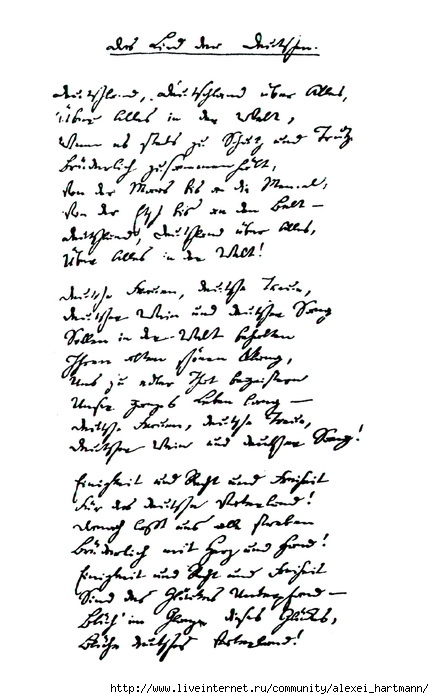 Das Lied der Deutschen.
Deutschland, Deutschland über Alles,
Über Alles in der Welt,
Wenn es stets zu Schutz und Trutz
Brüderlich zusammenhält,
Von der Maas bis an die Memel,
Von der Etsch bis an den Belt –
Deutschland, Deutschland über Alles,
Über Alles in der Welt!
Deutsche Frauen, deutsche Treue,
Deutscher Wein und deutscher Sang
Sollen in der Welt behalten
Ihren alten schönen Klang,
Uns zu edler That begeistern
Unser ganzes Leben lang –
Deutsche Frauen, deutsche Treue,
Deutscher Wein und deutscher Sang!
Einigkeit und Recht und Freiheit
Für das deutsche Vaterland!
Danach laßt uns alle streben
Brüderlich mit Herz und Hand!
Einigkeit und Recht und Freiheit
Sind des Glückes Unterpfand –
Blüh' im Glanze dieses Glückes,
Blühe deutsches Vaterland!
http://www.liveinternet.ru/community/alexei_hartmann/